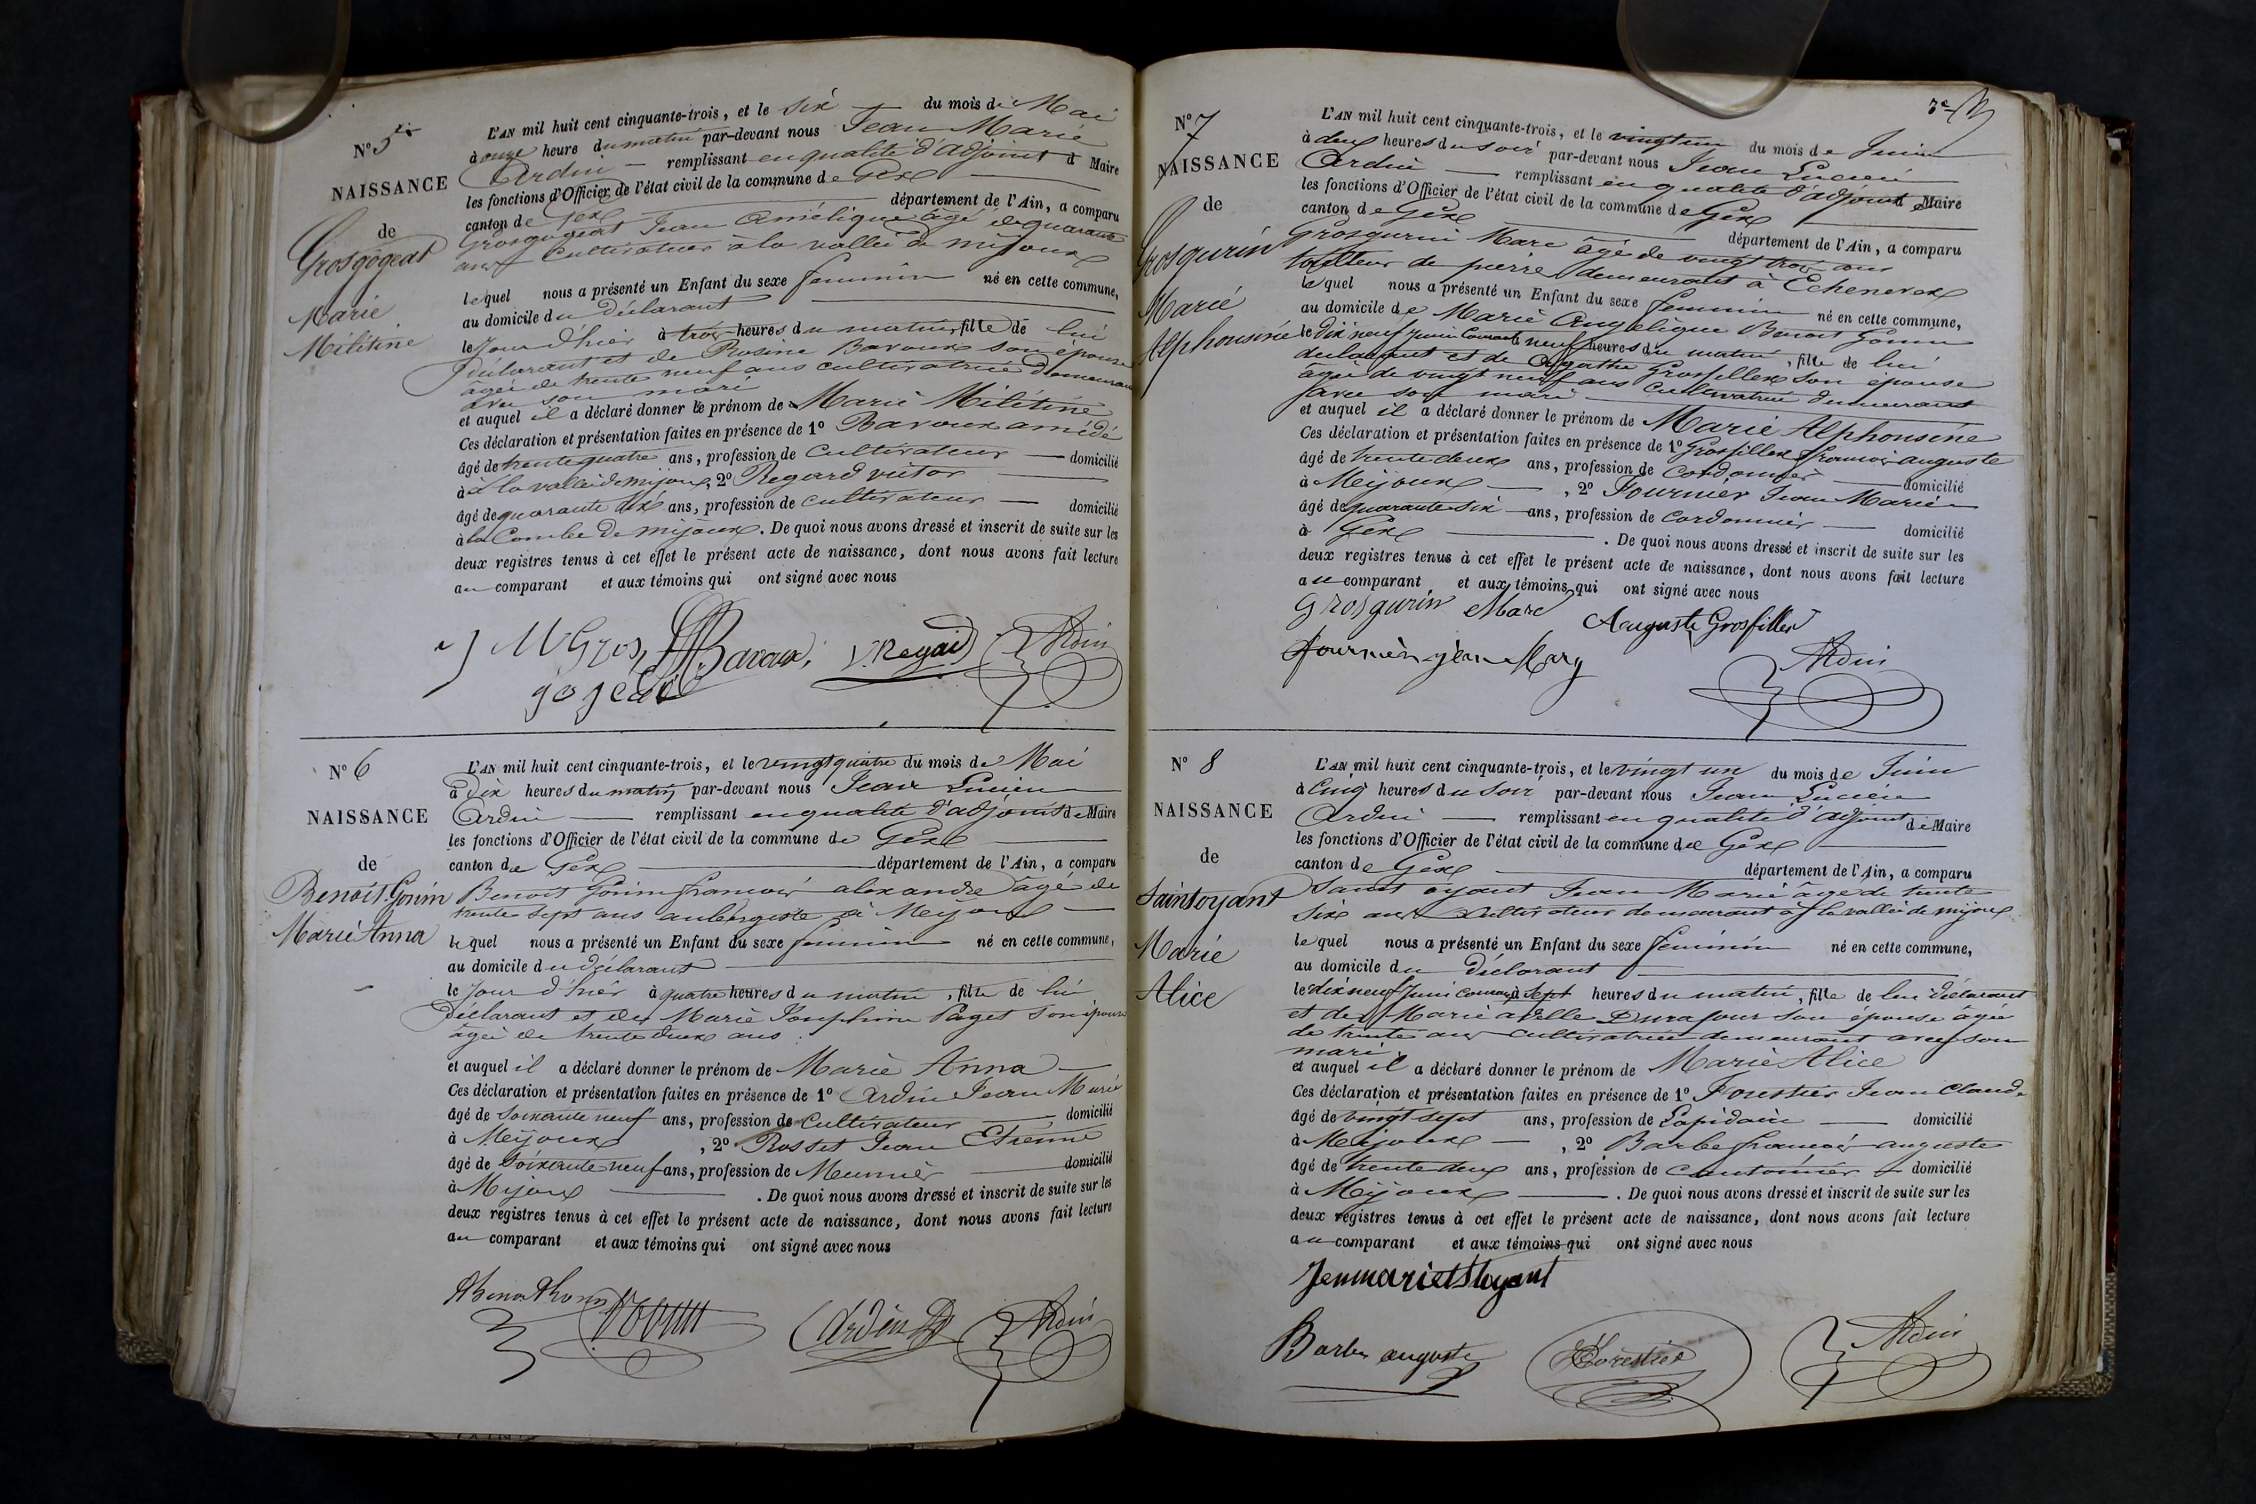 N° 5
NAISSANCE
de
Grosgogeat
Marie
Militine
L'AN mil huit cent cinquante-trois, et le six du mois de Mai
à onze heure du matin par-devant nous Jean Marie
Ardin remplissant en qualité d'adjoint d Maire
les fonctions d'Officier de l'état civil de la commune de Gex
canton de Gex département de l'Ain, a comparu
Grosgogeat Jean Amélique âgé de quarante
ans cultivateur à la vallée de mijoux
lequel nous a présenté un Enfant du sexe feminin né en cette commune,
au domicile du déclarant
le Jour d'hier à trois heures du matin, fille de lui
déclarant et de Rosine Bavoux son épouse
âgée de trente neuf ans cultivatrice demeurant
avec son mari
et auquel il a déclaré donner le prénom de Marie Militine
Ces déclaration et présentation faites en présence de 1° Bavoux amédé
âgé de trente quatre ans, profession de cultivateur domicilié
à à la vallée de mijoux, 2° Regard victor
âgé de quarante dix ans, profession de cultivateur domicilié
à la Combe de mijoux. De quoi nous avons dressé et inscrit de suite sur les
deux registres tenus à cet effet le présent acte de naissance, dont nous avons fait lecture
au comparant et aux témoins qui ont signé avec nous
Gros Bavoux, V. Regard Ardin
gogeat
N° 6
NAISSANCE
de
Benoit Gonin
Marie Anna
L'AN mil huit cent cinquante-trois, et le vingt quatre du mois de Mai
à Dix heures du matin par-devant nous Jean Lucien
Ardin remplissant en qualité d'adjoint de Maire
les fonctions d'Officier de l'état civil de la commune de Gex
canton de Gex département de l'Ain, a comparu
Benoit Gonin francois alexandre âgé de
trente sept ans aubergiste à Meijoux
lequel nous a présenté un Enfant du sexe feminin né en cette commune,
au domicile du déclarant
le Jour d'hier à quatre heures du matin, fille de lui
Déclarant et de Marie Josephine Paget son épouse
âgée de trente deux ans
et auquel il a déclaré donner le prénom de Marie Anna
Ces déclaration et présentation faites en présence de 1° Ardin Jean Marie
âgé de soixante neuf ans, profession de Cultivateur domicilié
à Meijoux, 2° Rosset Jean Etienne
âgé de soixante neuf ans, profession de Meunier domicilié
à Mijoux. De quoi nous avons dressé et inscrit de suite sur les
deux registres tenus à cet effet le présent acte de naissance, dont nous avons fait lecture
au comparant et aux témoins qui ont signé avec nous
Ardin Ardin
N° 7
NAISSANCE
de
Grosgurin
Marie
Alphonsine
L'AN mil huit cent cinquante-trois, et le vingt un du mois de Juin
à deux heures du soir par-devant nous Jean Lucien
Ardin remplissant en qualité d'adjoint d Maire
les fonctions d'Officier de l'état civil de la commune de Gex
canton de Gex département de l'Ain, a comparu
Grosgurin Marc âgé de vingt trois ans
tailleur de pierre demeurant à Echenevex
lequel nous a présenté un Enfant du sexe feminin né en cette commune,
au domicile de Marie Angélique Benoit Gonin
le Dix neuf juin Courant à neuf heures du matin, fille de lui
déclarant et de Agathe Grosfillex son épouse
âgée de vingt neuf ans Cultivatrice demeurant
avec son mari
et auquel il a déclaré donner le prénom de Marie Alphonsine
Ces déclaration et présentation faites en présence de 1° Grosfillex francois auguste
âgé de trente deux ans, profession de Cordonnier domicilié
à Meijoux, 2° Fournier Jean Marie
âgé de quarante six ans, profession de Cordonnier domicilié
à Gex. De quoi nous avons dressé et inscrit de suite sur les
deux registres tenus à cet effet le présent acte de naissance, dont nous avons fait lecture
au comparant et aux témoins qui ont signé avec nous
Grosgurin Marc Auguste Grosfillex
fournier jean Mary Ardin
N° 8
NAISSANCE
de
Saintoyant
Marie
Alice
L'AN mil huit cent cinquante-trois, et le vingt un du mois de Juin
à Cinq heures du soir par-devant nous Jean Lucien
Ardin remplissant en qualité d'adjoint de Maire
les fonctions d'Officier de l'état civil de la commune de Gex
canton de Gex département de l'Ain, a comparu
Saint oyant Jean Marie âgé de trente
six ans cultivateur demeurant à la vallée de mijoux
lequel nous a présenté un Enfant du sexe feminin né en cette commune,
au domicile du Déclarant
le dix neuf Juin Courant à sept heures du matin, fille de lui déclarant
et de Marie adelle Durafour son épouse âgée
de trente ans cultivatrice demeurant avec son
mari
et auquel il a déclaré donner le prénom de Marie Alice
Ces déclaration et présentation faites en présence de 1° Forestier Jean Claude
âgé de vingt sept ans, profession de Lapidaire domicilié
à Meijoux, 2° Barbe francois auguste
âgé de trente deux ans, profession de Cantonnier domicilié
à Mijoux. De quoi nous avons dressé et inscrit de suite sur les
deux registres tenus à cet effet le présent acte de naissance, dont nous avons fait lecture
au comparant et aux témoins qui ont signé avec nous
Jenmarie Stoyant
Barbe auguste Forestier Ardin